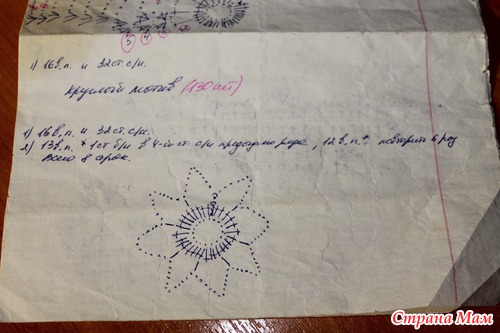 1) 16 в.п. и 32 ст. с/н.
Круглый мотив (130 шт)
1) 16 в.п. и 32 ст. с/н.
2) 13 в.п. * 1 ст б/н в 4-й ст с/н предыдущ ряда, 12 в.п. * повторить 6 раз
Всего 8 арок.
Страна Мам